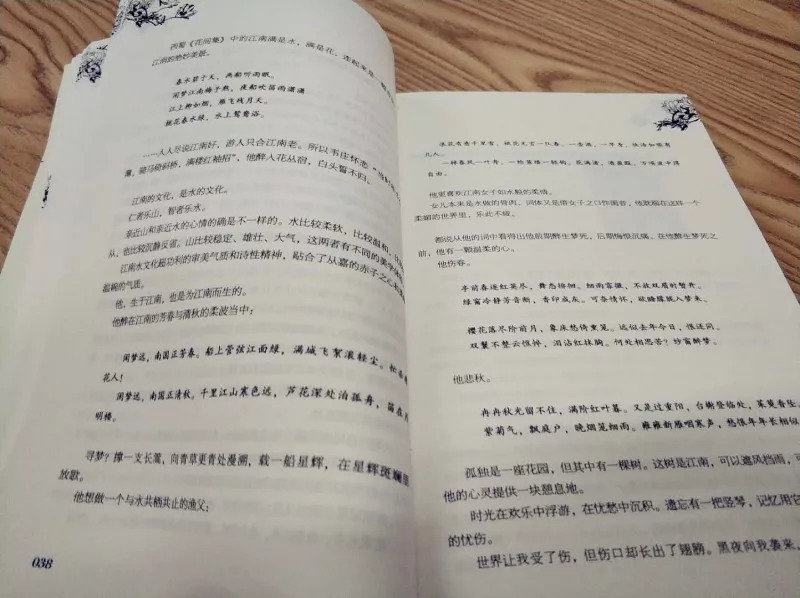 西蜀《花间集》中的江南满是水，满是花，连起来是一
江南的绝妙美景。
春水碧于天，画船听雨眠。
闲梦江南梅子熟，夜船吹笛雨潇潇
江上柳如烟，雁飞残月天。
桃花春水渌，水上鸳鸯浴。
……人人尽说江南好，游人只合江南老。所以韦庄怀恋“
薄，骑马倚斜桥，满楼红袖招”，他醉入花丛宿，白头誓不归。
江南的文化，是水的文化。
仁者乐山，智者乐水。
亲近山和亲近水的心情的确是不一样的。水比较柔软，比较温和，
从，也比较沉静反省。山比较稳定、雄壮、大气，这两者有不同的美学
江南水文化超功利的审美气质和诗性精神，贴合了从嘉的赤子之心和
温婉的气质。
他，生于江南，也是为江南而生的。
他醉在江南的芳春与清秋的柔波当中：
闲梦远，南国正芳春。船上管弦江面绿，满城飞絮滚轻尘。
花人！
闲梦远，南国正清秋。千里江山寒色远，芦花深处泊孤舟，笛在月
明楼。
寻梦？撑一支长篙，向青草更青处漫溯，载一船星辉，在星辉斑斓里
放歌。
他想做一个与水共栖共止的渔父；
038
浪花有意千里雪，桃花无言一队春。一壶酒，一竿身，快活如侬有
几人。
一棹春风一叶舟，一纶茧缕一轻钩。花满渚，酒盈瓯，万顷波中得
自由。
他更喜欢江南女子如水般的柔情。
女儿本来是水做的骨肉，词体又是借女子之口怡园音，他耽溺在这样一个
柔媚的世界里，乐此不疲。
都说从他的词中看得出他前期醉生梦死，后期悔恨沉痛。在他醉生梦死之
前，他有一颗温柔的心。
他伤春。
亭前春逐红英尽，舞态徘徊。细雨霏微，不放双眉时暂开。
绿窗冷静芳音断，香印成灰。可奈情怀，欲睡朦胧入梦来。
樱花落尽阶前月，象床愁倚熏笼。远似去年今日，恨还同。
双鬟不整云憔悴，泪沾红抹胸。何处相思苦？纱窗醉梦。
他悲秋。
冉冉秋光留不住，满阶红叶暮。又是过重阳，台榭登临处，茱萸香坠。
紫菊气，飘庭户，晚烟笼细雨。雍雍新雁咽寒声，愁恨年年长相似
孤独是一座花园，但其中有一棵树。这树是江南，可以遮风挡雨，可
他的心灵提供一块憩息地。
时光在欢乐中浮游，在忧愁中沉积。遗忘有一把竖琴，记忆用它
的忧伤。
世界让我受了伤，但伤口却长出了翅膀。黑夜向我袭来，